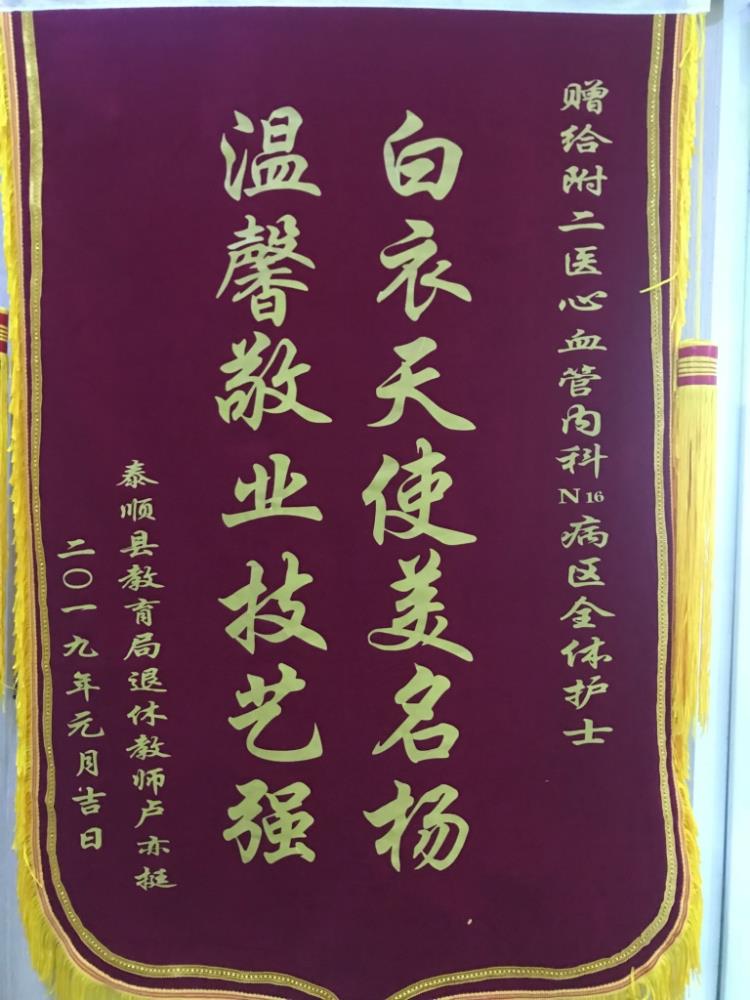 赠给附二医心血管内科N16病区全体护士
白衣天使美名杨
温馨敬业技艺强
泰顺县教育局退休教师卢亦挺
二〇一九年元月吉日